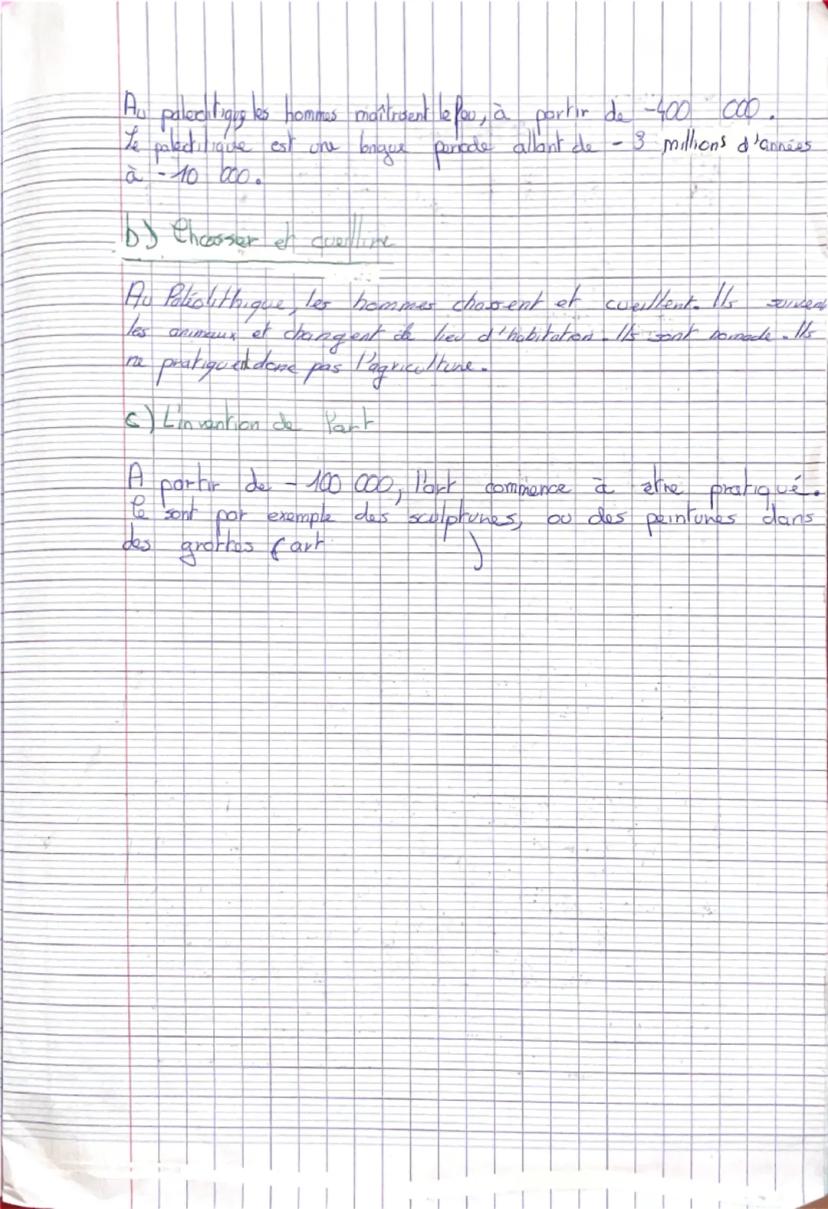 Au paleolitique les hommes maîtrisent le feu, à partir de -400 000.
Le paleolitique est une longue periode allant de - 3 millions d'années
à - 10 000.
b) Chasser et cueillire
Au Paléolithique, les hommes chassent et cueillent. Ils suivent
les animaux et changent de lieu d'habitation. Ils sont nomade. Ils
ne pratiquent donc pas l'agriculture.
c) L'invention de l'art
A partir de - 100 000, l'art commence à etre pratiqué.
Ce sont par exemple des sculptures, ou des peintures dans
des grottes (art )